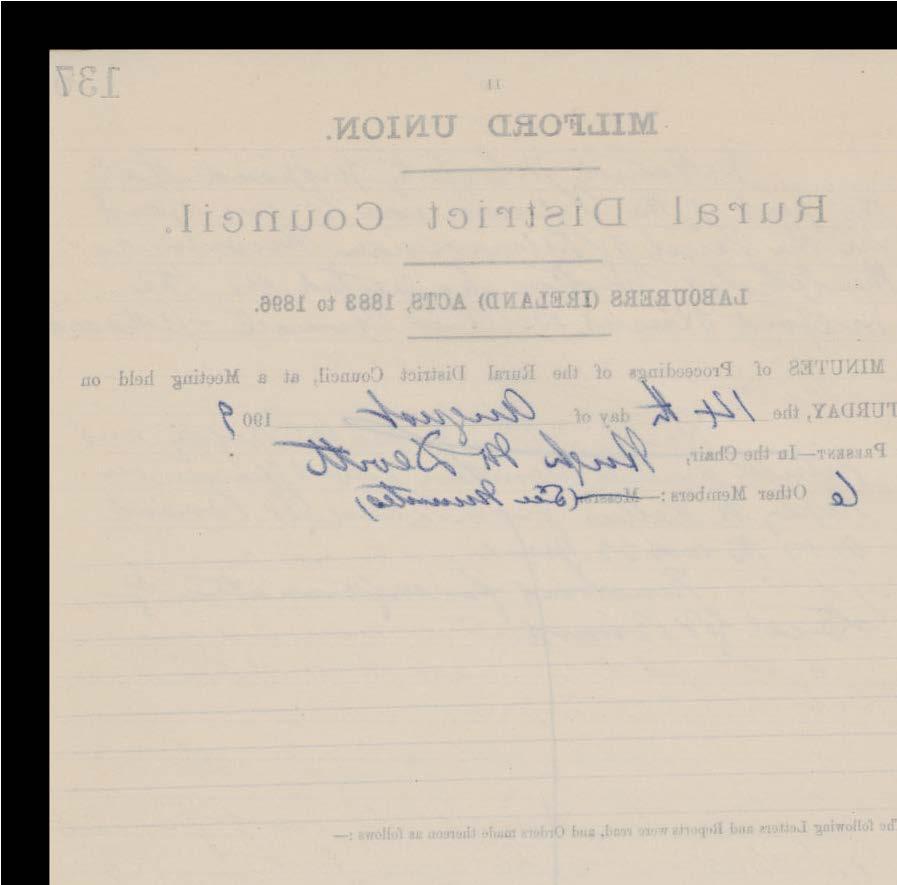 137
11
MILFORD UNION.
Rural District Council.
LABOURERS (IRELAND) ACTS, 1883 to 1896.
MINUTES of Proceedings of the Rural District Council, at a Meeting held on
TURDAY, the 14th day of August 1909
PRESENT—In the Chair, Hugh Mc Devitt
6 Other Members:—Messrs. (See Minutes)
he following Letters and Reports were read, and Orders made thereon as follows:—